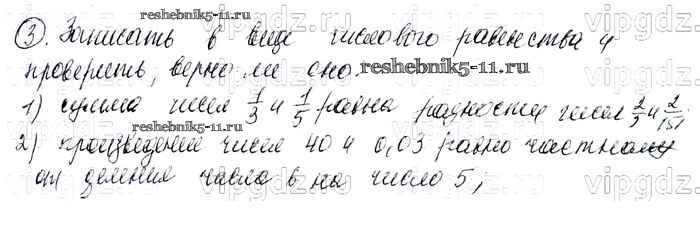 reshebnik5-11.ru
③. Записать в виде числового равенства и
проверить, верно ли оно. reshebnik5-11.ru
1) сумма чисел 1/3 и 1/5 равна разности чисел 2/3 и 2/15;
reshebnik5-11.ru
2) произведение чисел 40 и 0,03 равно частному
от деления числа 6 на число 5;
vipgdz.ru